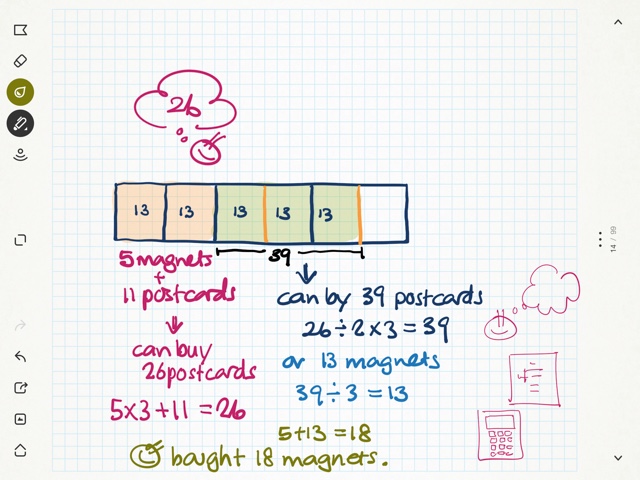 26
13 13 13 13 13
39
5 magnets
+
11 postcards
can buy
26 postcards
5×3+11 = 26
can by 39 postcards
26÷2×3=39
or 13 magnets
39÷3=13
5+13=18
bought 18 magnets.
14 / 99